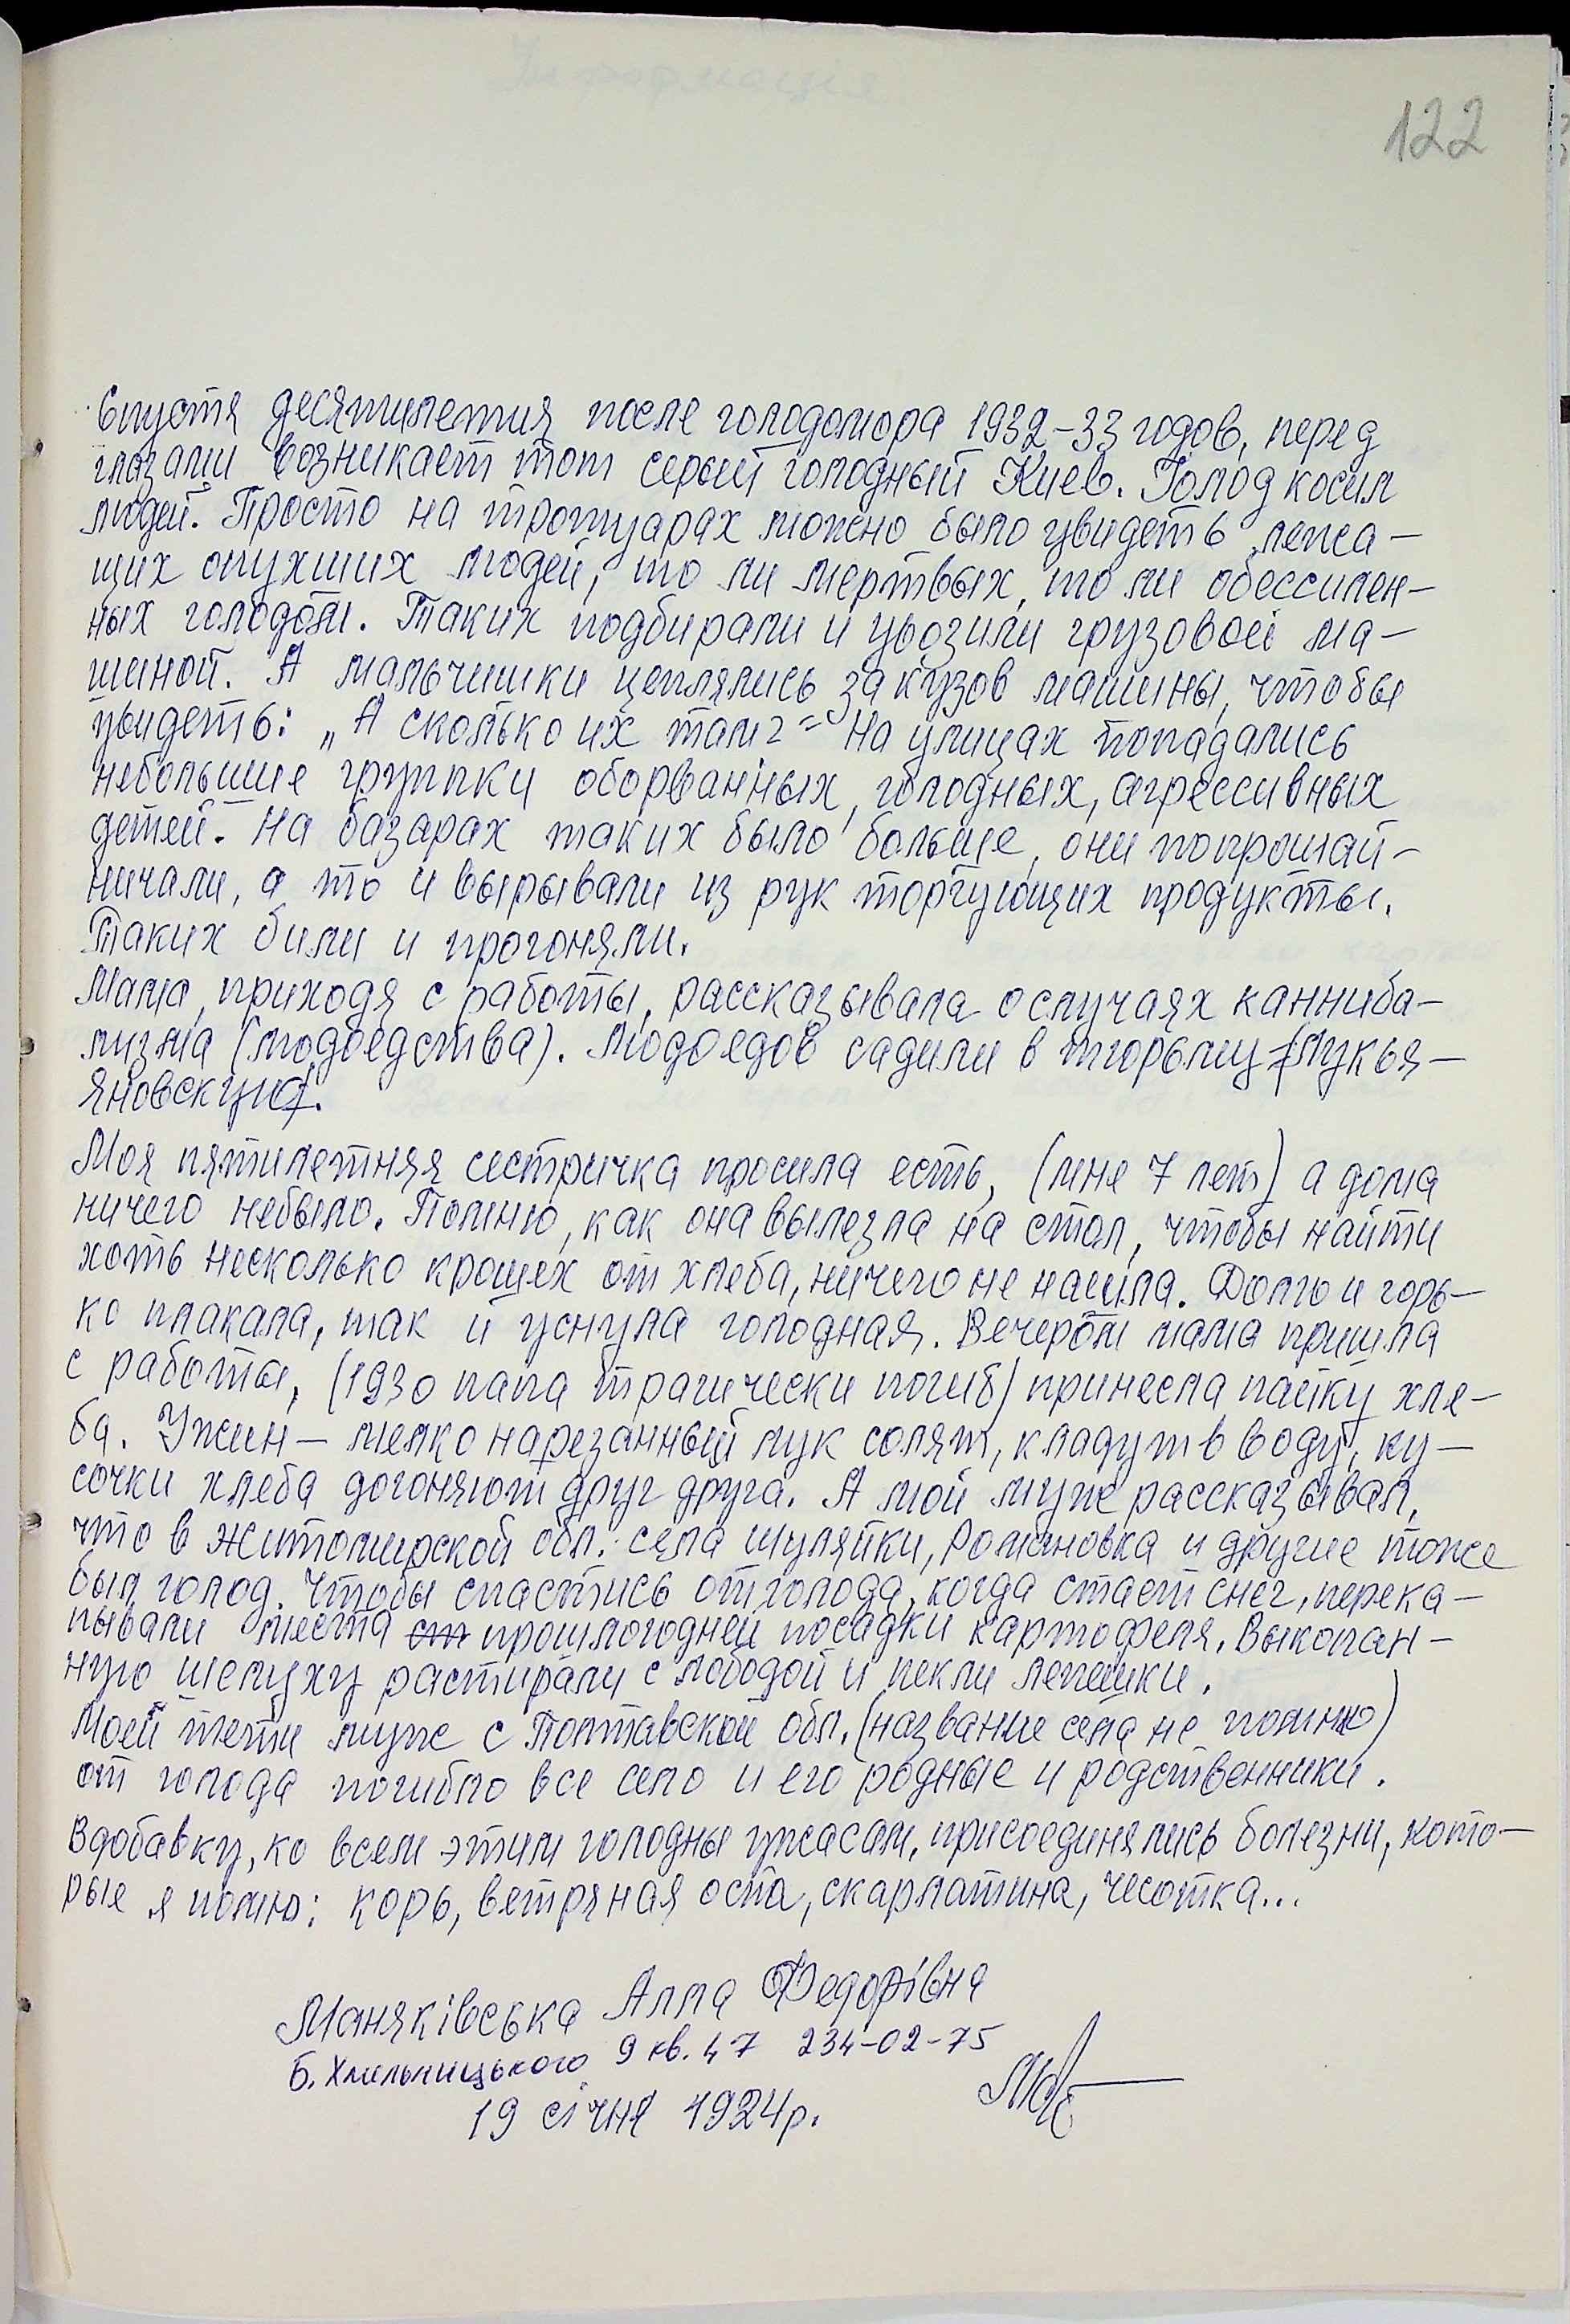 122
Спустя десятилетия после голодомора 1932-33 годов, перед
глазами возникает тот серый голодный Киев. Голод косил
людей. Просто на тротуарах можно было увидеть лежа-
щих опухших людей, то ли мертвых, то ли обессилен-
ных голодом. Таких подбирали и увозили грузовой ма-
шиной. А мальчишки цеплялись за кузов машины, чтобы
увидеть: „А сколько их там?" На улицах попадались
небольшие группки оборванных, голодных, агрессивных
детей. На базарах таких было больше, они попрошай-
ничали, а то и вырывали из рук торгующих продукты.
Таких били и прогоняли.
Мама, приходя с работы, рассказывала о случаях канниба-
лизма (людоедства). Людоедов садили в тюрьму Лукья-
яновскую.
Моя пятилетняя сестричка просила есть, (мне 7 лет) а дома
ничего небыло. Помню, как она вылезла на стол, чтобы найти
хоть несколько крошек от хлеба, ничего не нашла. Долго и горь-
ко плакала, так и уснула голодная. Вечером мама пришла
с работы, (1930 папа трагически погиб) принесла пайку хле-
ба. Ужин - мелко нарезанный лук солят, кладут в воду, ку-
сочки хлеба догоняют друг друга. А мой муж рассказывал,
что в Житомирской обл. села Шуляйки, Романовка и другие тоже
был голод. Чтобы спастись от голода, когда стает снег, перека-
пывали места прошлогодней посадки картофеля. Выкопан-
ную шелуху растирали с лободой и пекли лепешки.
Моей тети муж с Полтавской обл. (название села не помню)
от голода погибло все село и его родные и родственники.
Вдобавку, ко всем этим голодны ужасам, присоединялись болезни, кото-
рые я помню: корь, ветряная оспа, скарлатина, чесотка...
Маняківська Алла Федорівна
Б. Хмельницького 9 кв. 47 234-02-75
19 січня 1924р.